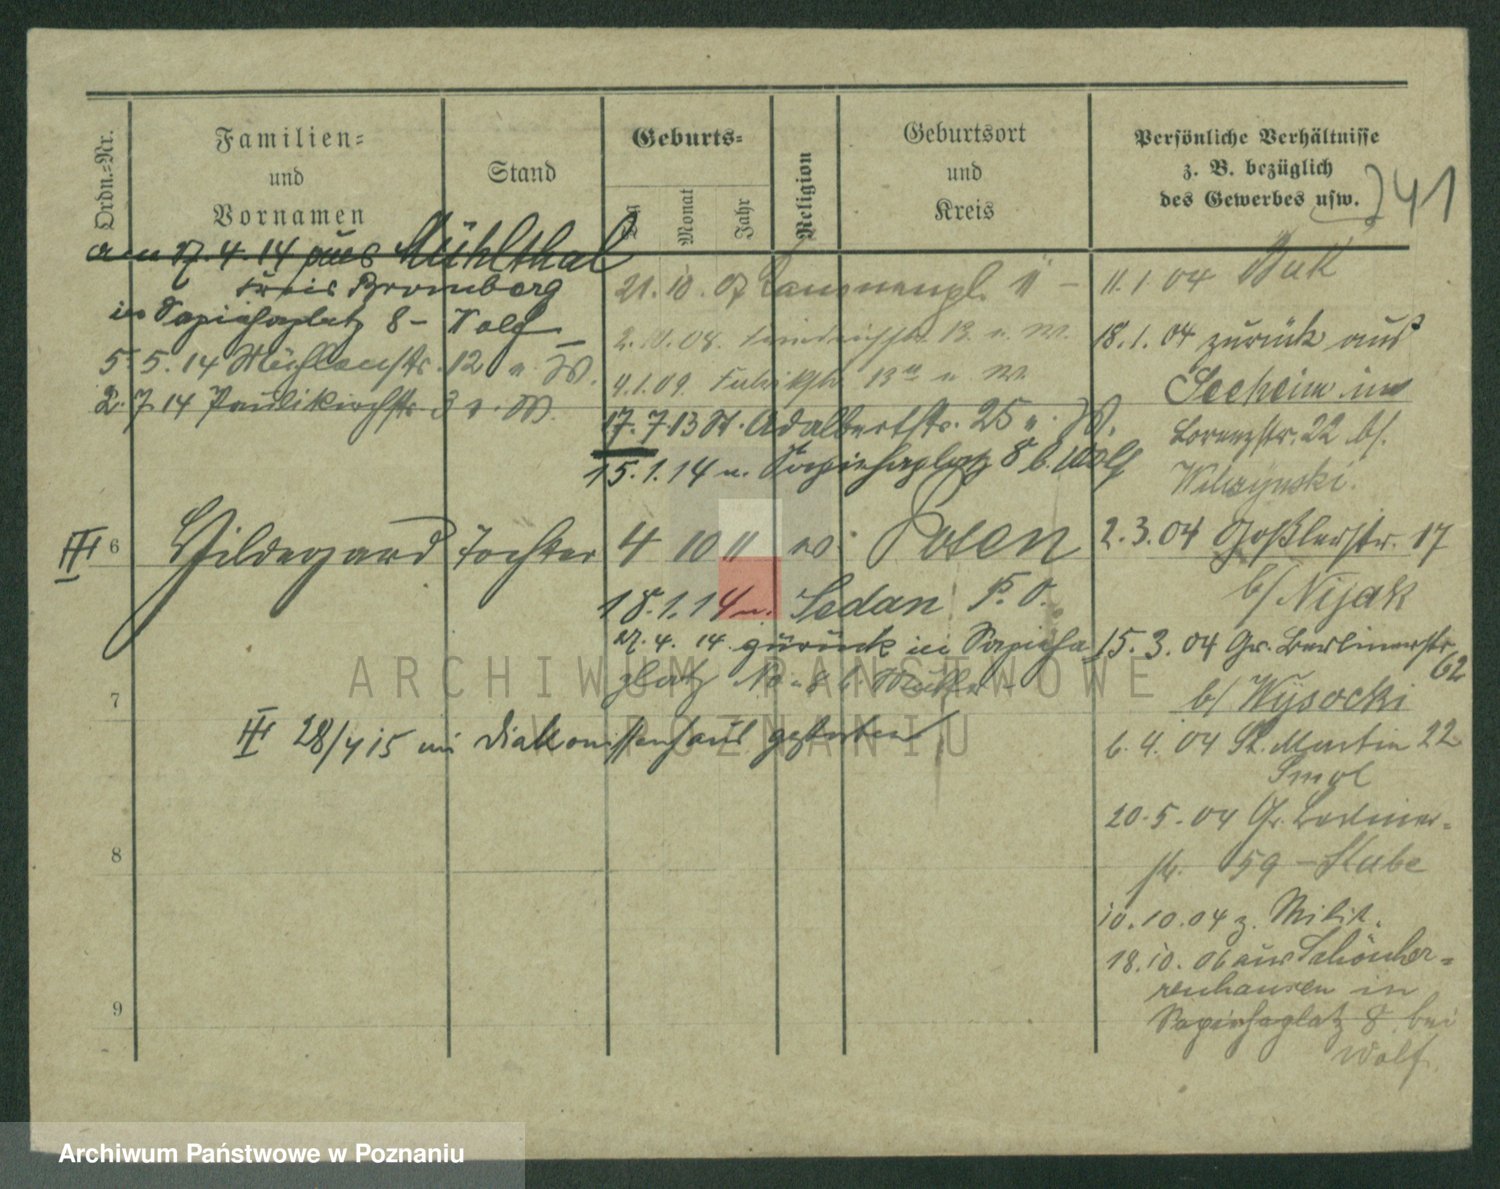 Ordn.=Nr.
Familien=
und
Vornamen
Stand
Geburts=
Tag
Monat
Jahr
Religion
Geburtsort
und
Kreis
Persönliche Verhältnisse
z. B. bezüglich
des Gewerbes usw.
741
am 17.4.14 aus Mühlthal
Kreis Bromberg
in Sapiehaplatz 8 - Wolf
5.5.14 Mühlenstr. 12 u. W.
2.7.14 Paulikirchstr. 3 W.
21.10.07
2. 08.
4.1.09. 13 u W.
17.7.13 St. Adalbertstr. 25 u. W.
15.1.14 n. Sapiehaplatz 8 b. Wolf
III 6 Hildegard Tochter 4 10 11 ev Posen
18.1.14 n. Sedan P. O.
27.4.14 zurück in Sapieha
platz No 8 b. Mutter
7
III 28/4 15 im Diakonissenhaus gestorben
8
9
11.1.04 Buk
18.1.04 zurück aus
Seeheim in
Lorenzstr. 22 b/.
Wilczynski.
2.3.04 Goßlerstr. 17
b/ Nijak
15.3.04 Gr. Berlinerstr.
62
b/ Wysocki
6.4.04 St. Martin 22
Smol
20.5.04 Gr. Berliner=
str. 59 - Stube
10.10.04 z. Milit.
18.10.06 aus Schönher=
renhausen in
Sapiehaplatz 8 bei
Wolf
ARCHIWUM PAŃSTWOWE
W POZNANIU
Archiwum Państwowe w Poznaniu